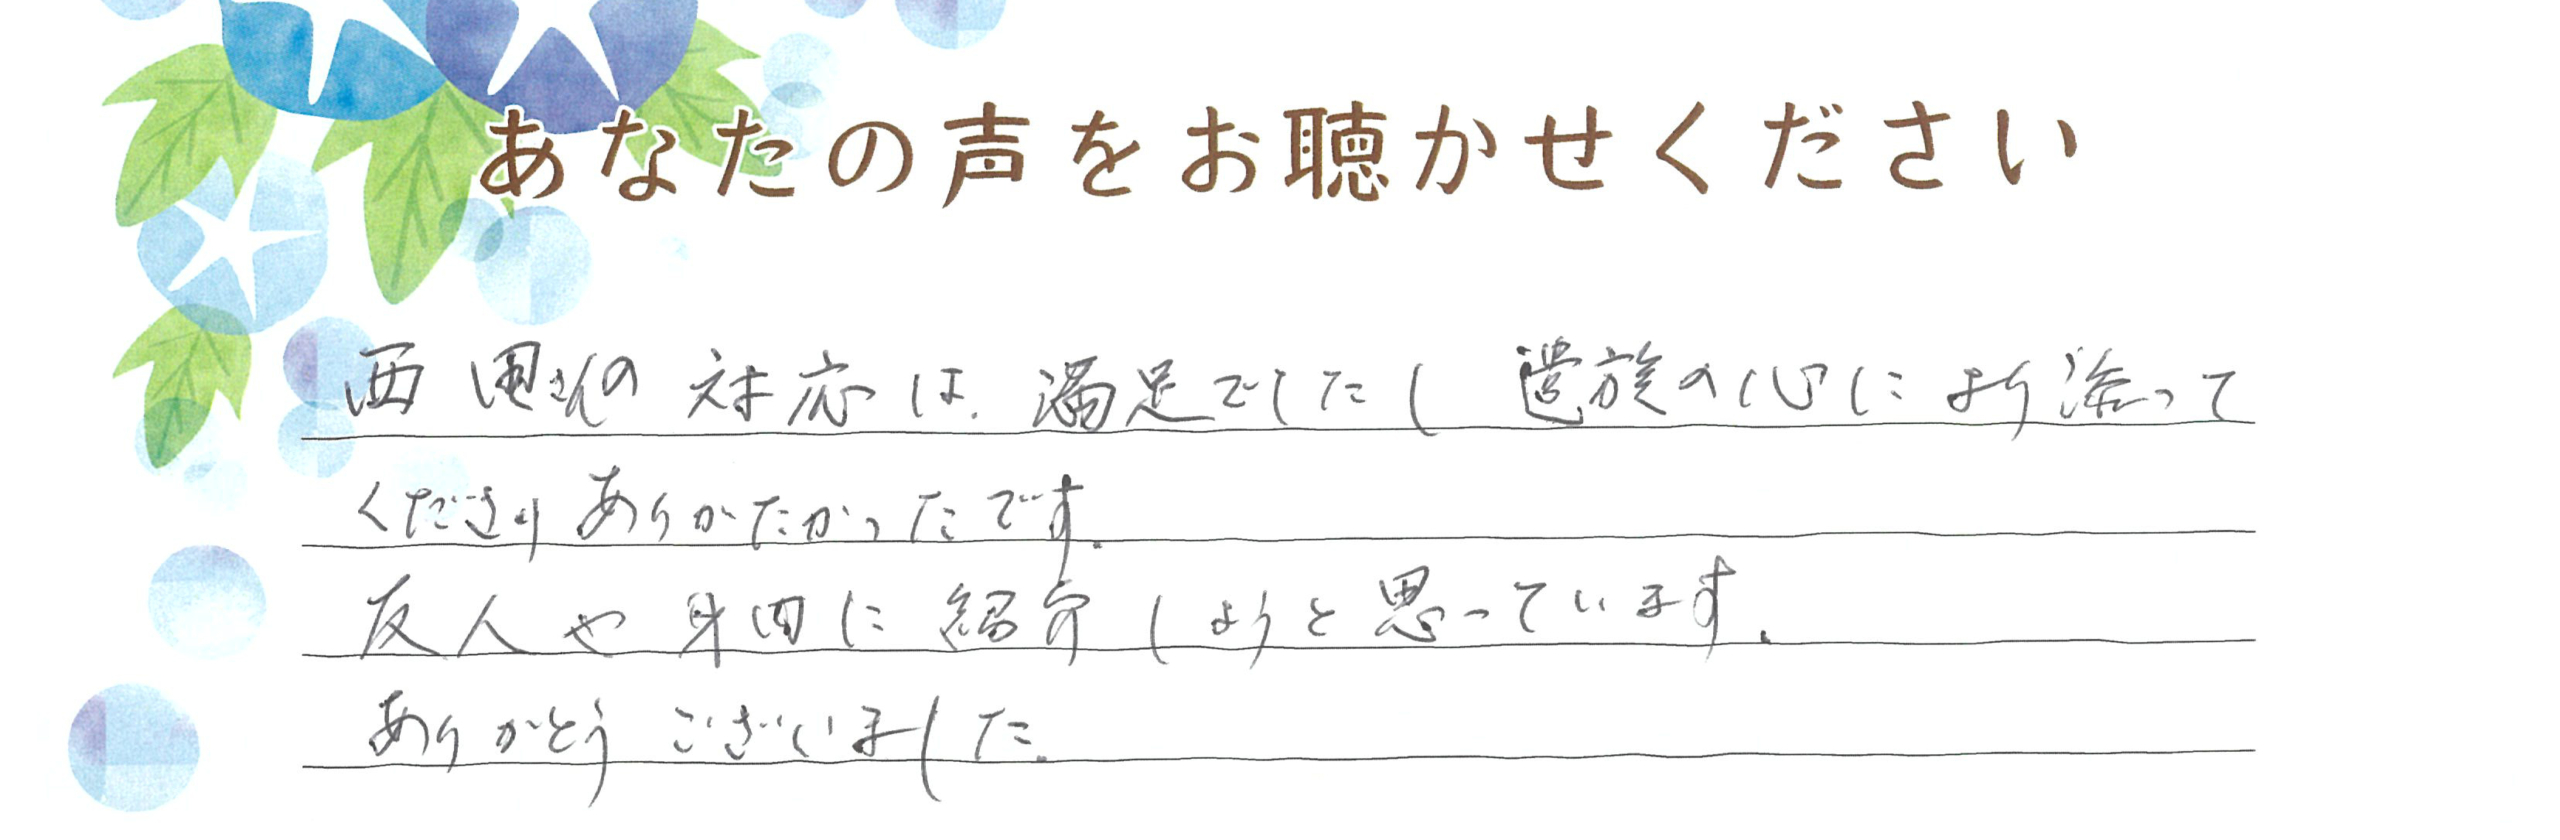 あなたの声をお聴かせください
西 さんの対応は、満足でしたし 遺族の心により添って
くださり ありがたかったです。
友人や身内に紹介しようと思っています。
ありがとうございました。